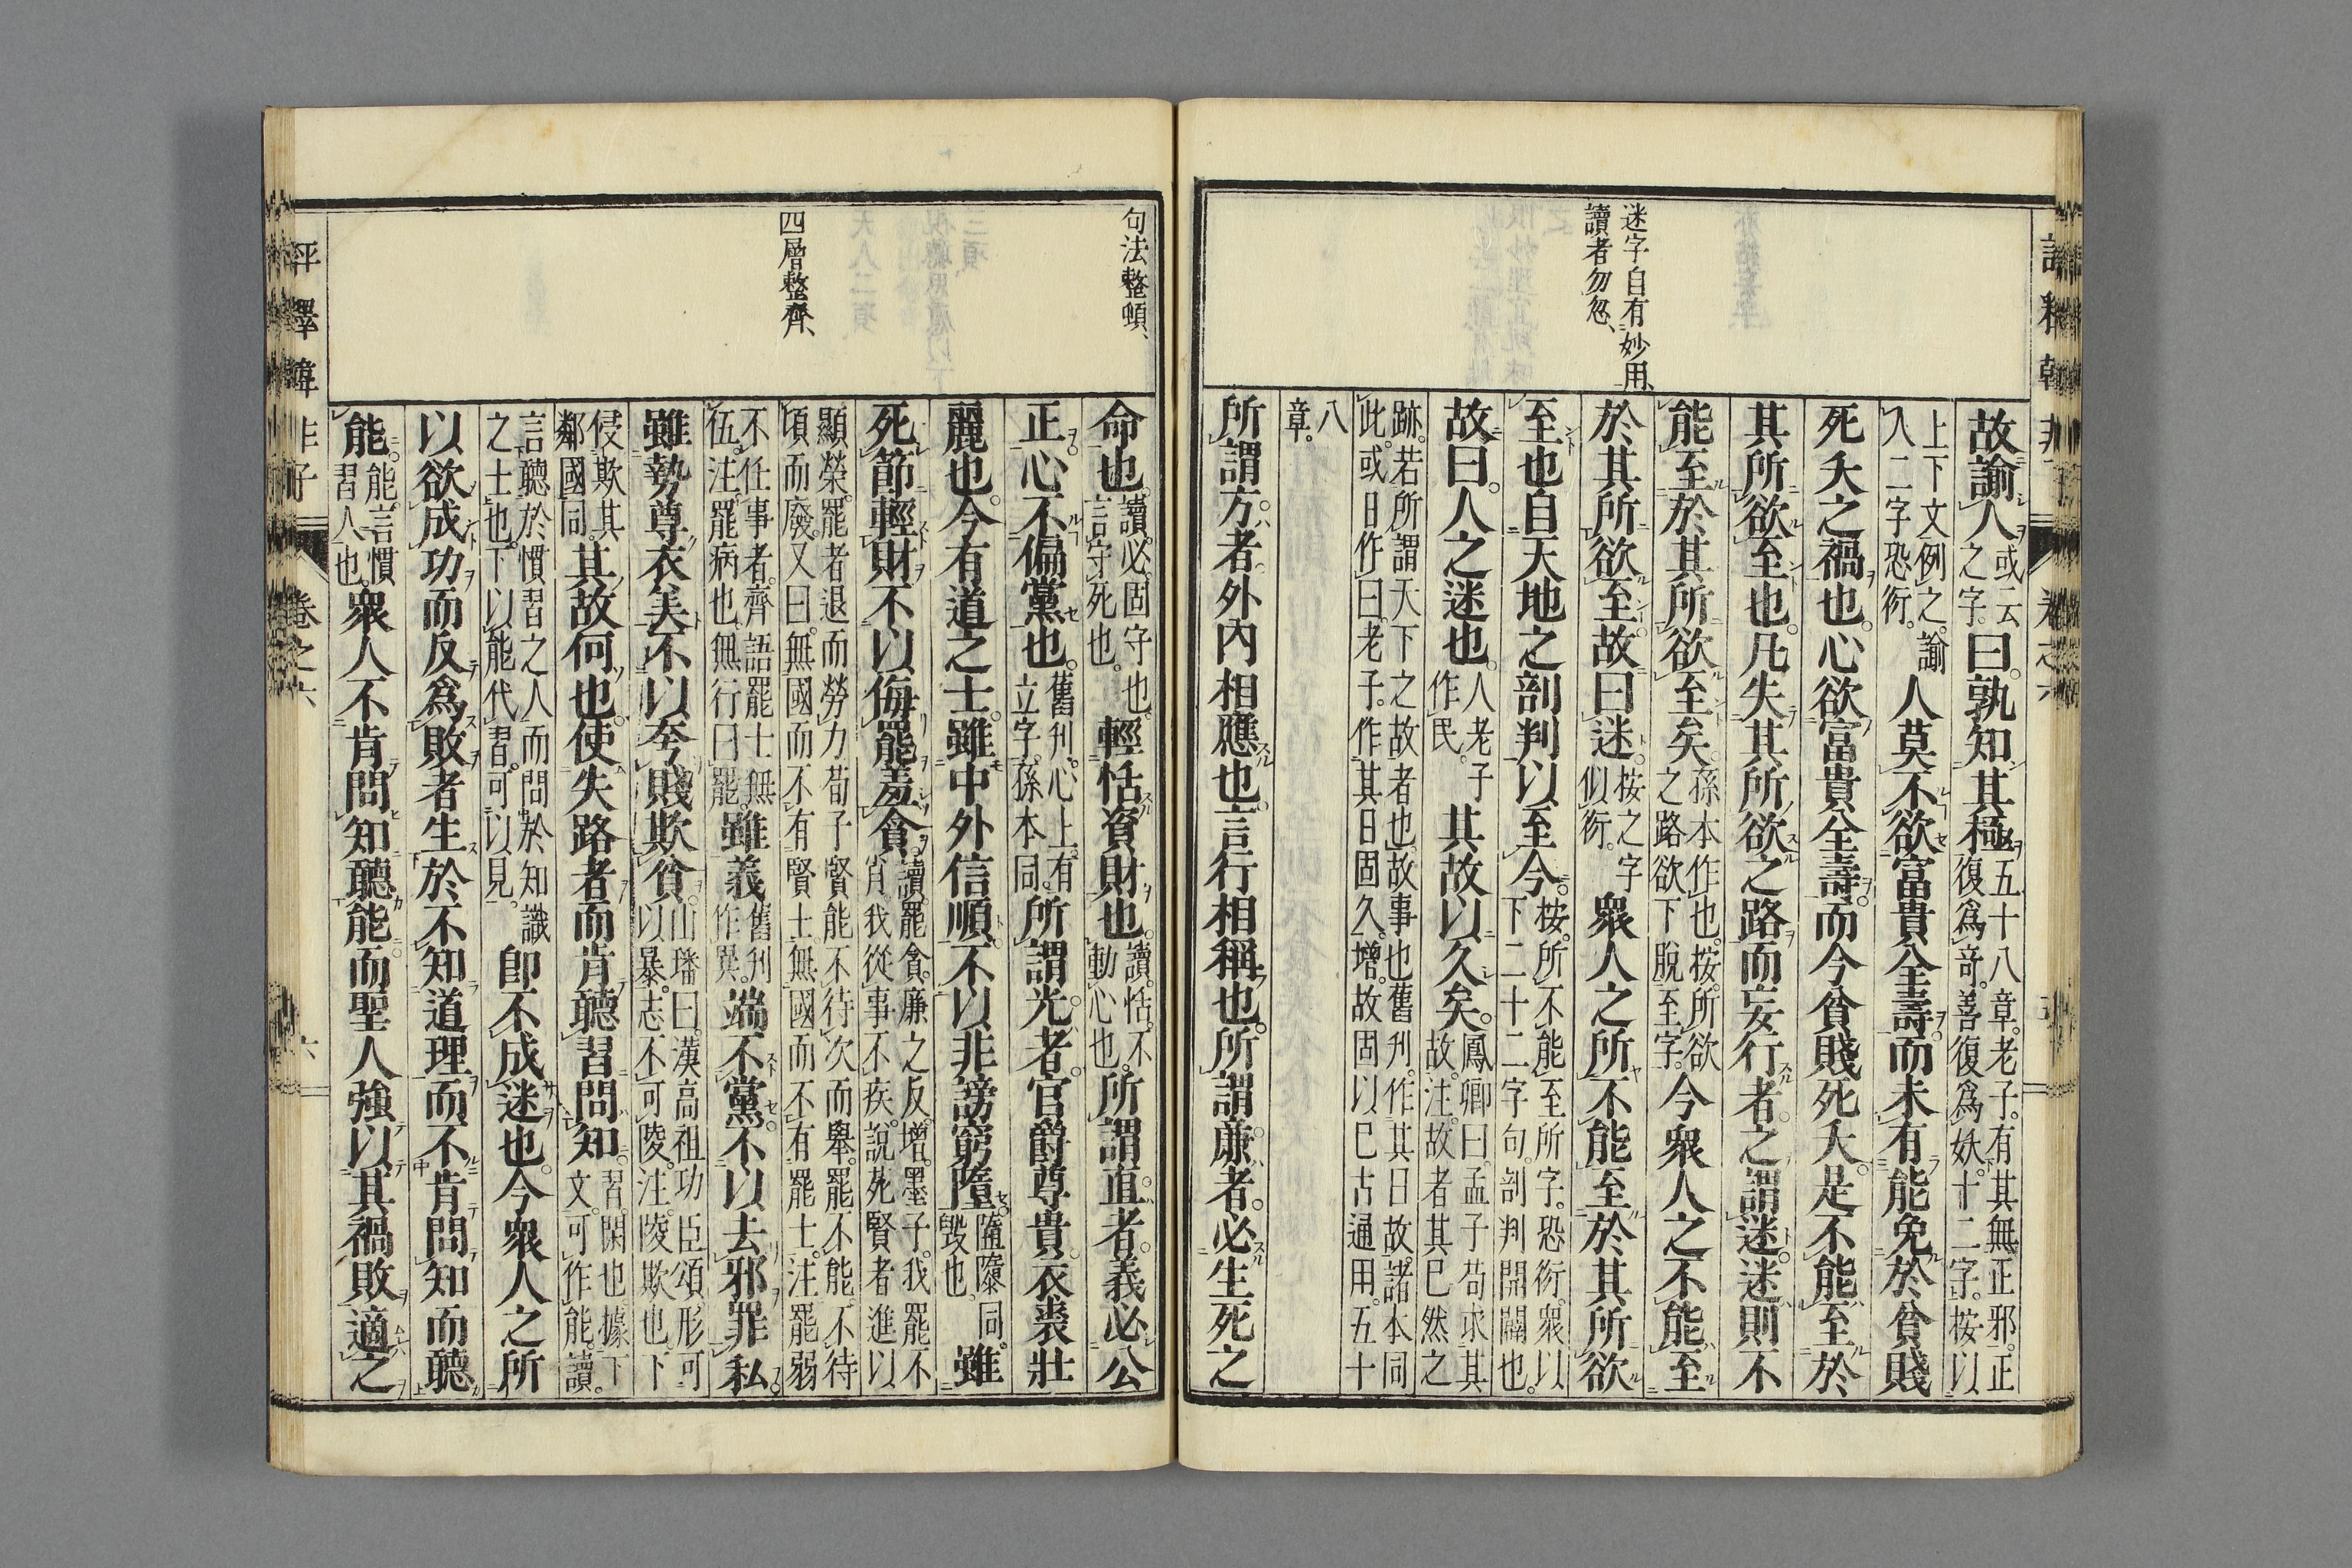 迷字自有妙用、
讀者勿忽、
故諭人或云之字。曰。孰知其極五十八章。老子。有其無正邪。正復爲奇。善復爲妖。十二字。按以
上下文例之。諭人二字恐衍。人莫不欲富貴全壽。而未有能免於貧賤
死夭之禍也。心欲富貴全壽。而今貧賤死夭。是不能至於
其所欲至也。凡失其所欲之路而妄行者。之謂迷。迷則不
能至於其所欲至矣。孫本作也。按。所欲之路欲下脫至字。今衆人之不能至
於其所欲至。故曰迷。按之字似衍。衆人之所不能至於其所欲
至也。自天地之剖判以至今。按。所不能至所字。恐衍。衆以下二十二字句。剖判開闢也。
故曰。人之迷也。人老子作民。其故以久矣。鳳卿曰。孟子苟求其故。注。故者其已然之
跡。若所謂天下之故者也。故事也。舊刋。作其日故。諸本同此。或日作曰。老子。作其日固久。增。故固以已古通用。五十
八章。
所謂方者。外內相應也。言行相稱也。所謂廉者。必生死之
句法整頓、
四層整齊、
命也。讀。必。固守也。言守死也。輕恬資財也。讀。恬。不動心也。所謂直者。義必公
正。心不偏黨也。舊刋。心上。有立字。孫本同。所謂光者。官爵尊貴。衣裘壯
麗也。今有道之士。雖中外信順。不以非謗窮墮。墮隳同。毁也。雖
死節輕財。不以侮罷羞貪。讀。罷貪。廉之反。增。墨子。我罷不肖。我從事不疾。說死賢者進以
顯榮。罷者退而勞力。荀子賢能不待次而舉。罷不能。不待頃而廢。又曰。無國而不有賢士。無國而不有罷士。注罷弱
不任事者。齊語罷士無伍。注。罷病也。無行曰罷。雖義舊刋作異。端不黨。不以去邪罪私。
雖勢尊衣美。不以夸賤欺貧。山璠曰。漢高祖功臣頌形可以暴。志不可陵。注。陵欺也。下
侵欺其鄰國同。其故何也。使失路者而肯聽習問知。習。閑也。據下文。可作能。讀。
言聽於慣習之人而問於知識之士也。下以能代習。可以見。卽不成迷也。今衆人之所
以欲成功而反爲敗者。生於不知道理而不肯問知而聽
能。能。言慣習人也。衆人不肯問知聽能。而聖人強以其禍敗適之
評釋韓非子 卷之六 六